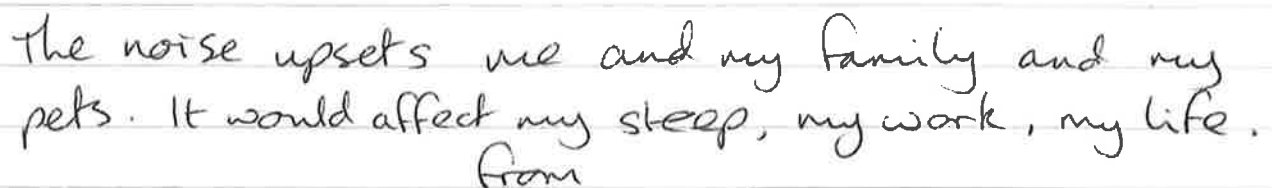 The noise upsets me and my family and my
pets. It would affect my sleep, my work, my life.
from